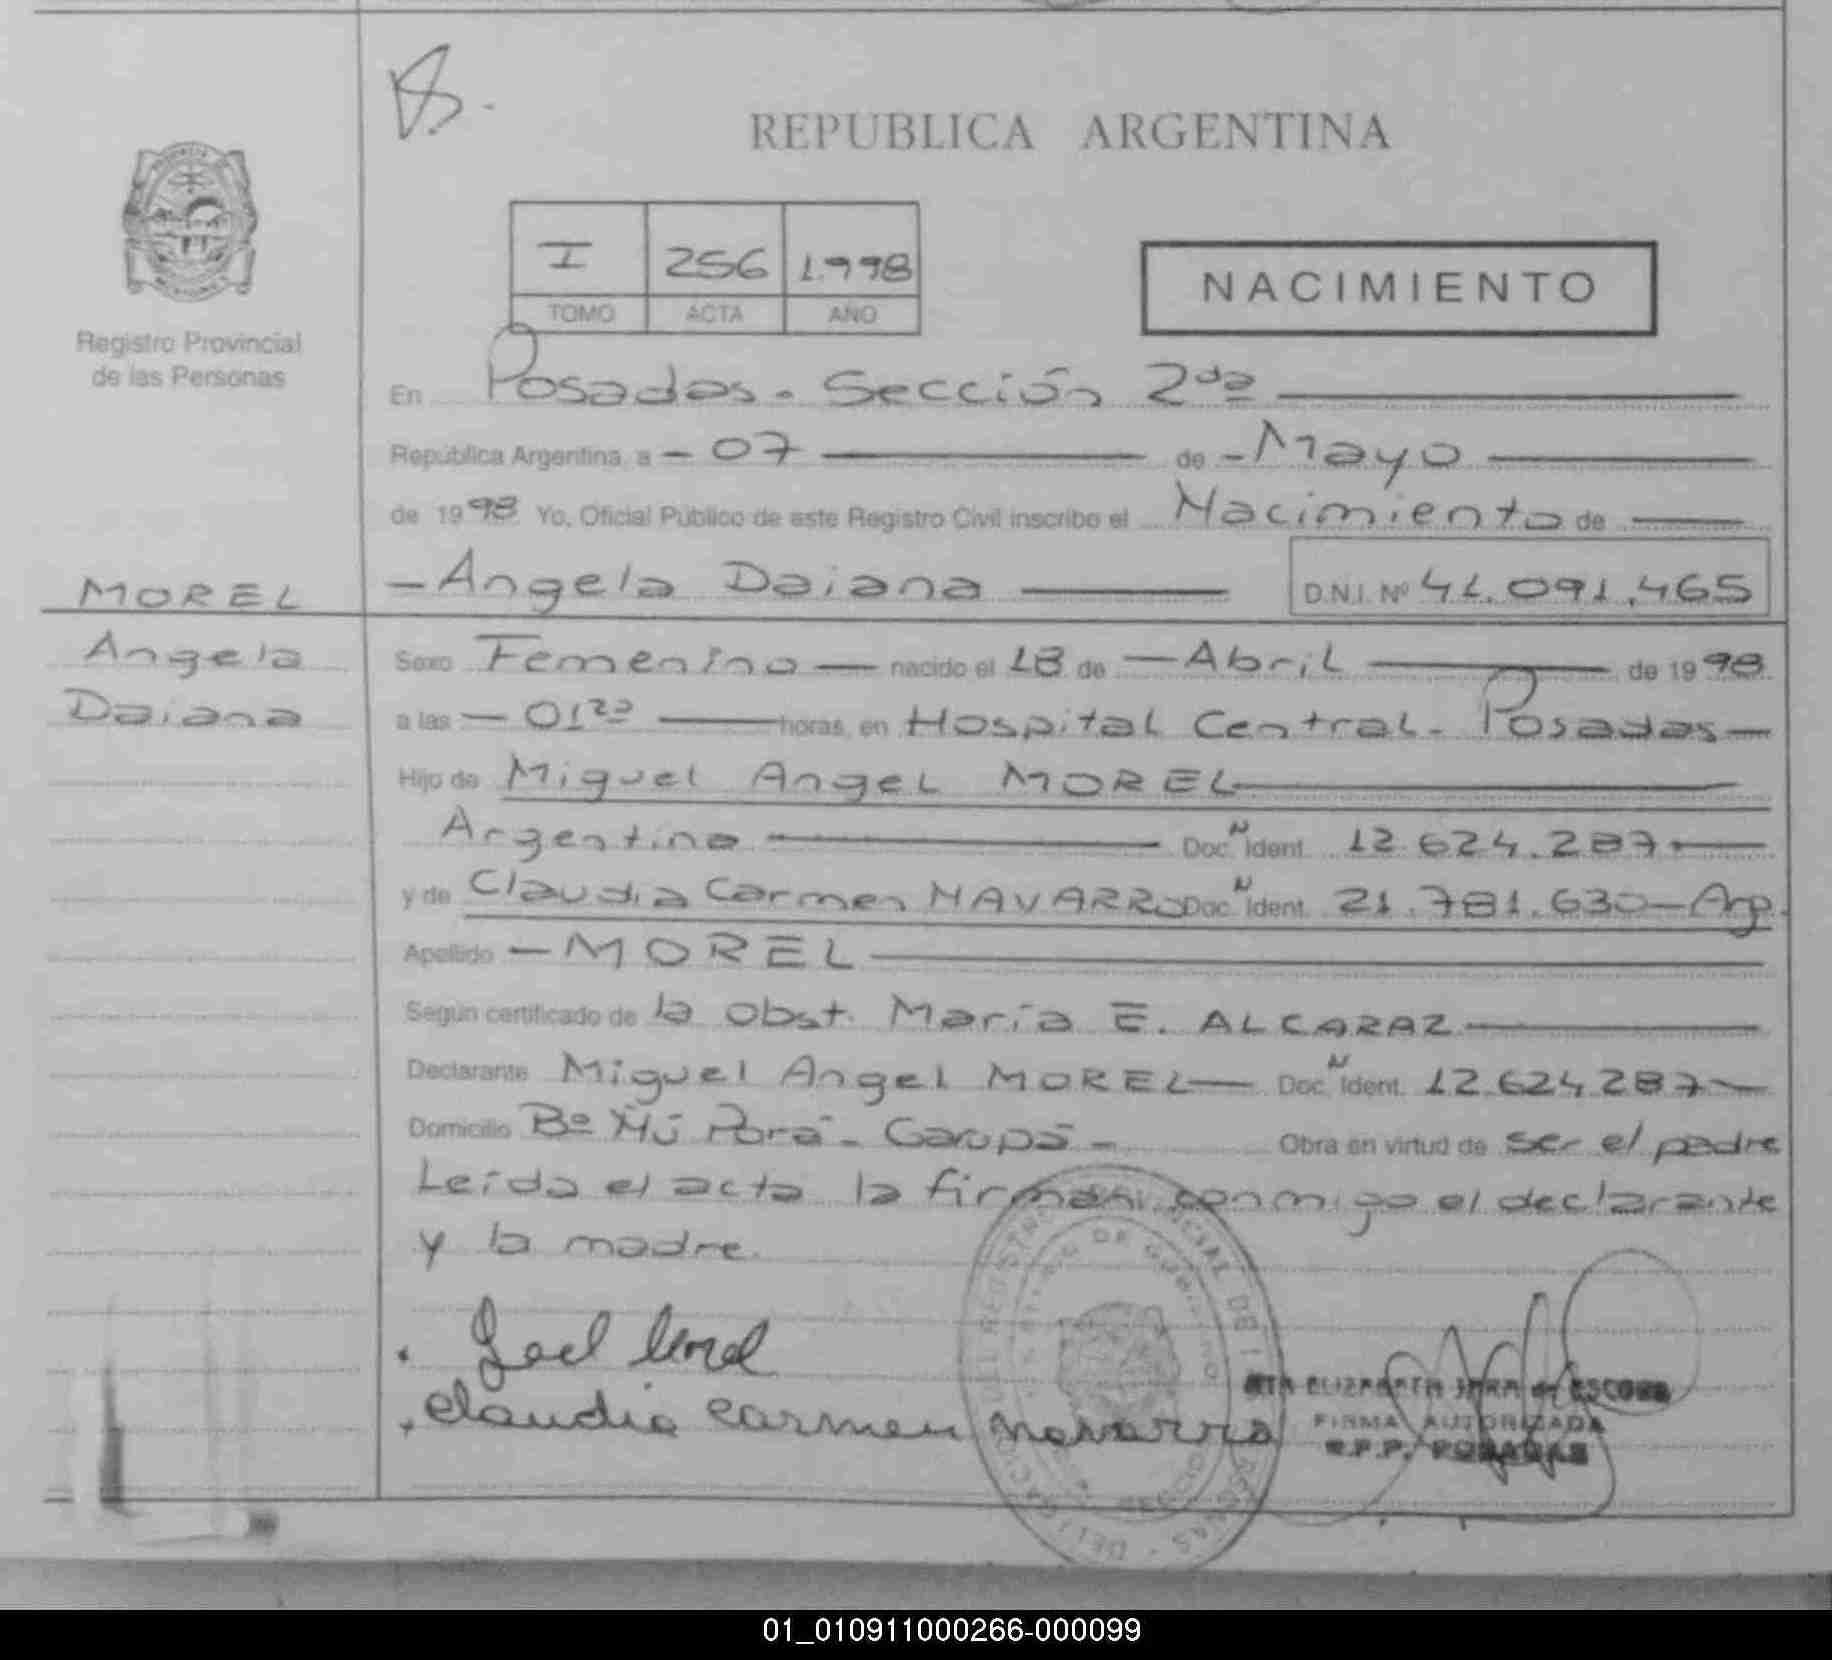 REPUBLICA ARGENTINA
I 256 1.998
TOMO ACTA AÑO
NACIMIENTO
Registro Provincial
de las Personas
En Posadas. Sección 2da
República Argentina, a - 07 de - Mayo
de 1998 Yo, Oficial Público de este Registro Civil inscribo el Nacimiento de
MOREL
Angela
Daiana
- Angela Daiana D.N.I. Nº 41.091.465
Sexo Femenino nacido el 18 de - Abril de 1998
a las - 01²⁰ horas, en Hospital Central - Posadas -
Hijo de Miguel Angel MOREL
Argentino Doc. N Ident. 12.624.287.
y de Claudia Carmen NAVARRO Doc. N Ident. 21.781.630 - Arg.
Apellido - MOREL
Según certificado de la Obst. María E. ALCARAZ
Declarante Miguel Angel MOREL - Doc. N Ident. 12.624.287 -
Domicilio Bº Ñú Porá - Garupá - Obra en virtud de ser el padre
Leída el acta la firman conmigo el declarante
y la madre.
Claudia Carmen Navarro
ELIZABETH JARA de ESCOBAR
FIRMA AUTORIZADA
R.P.P. POSADAS
01_010911000266-000099